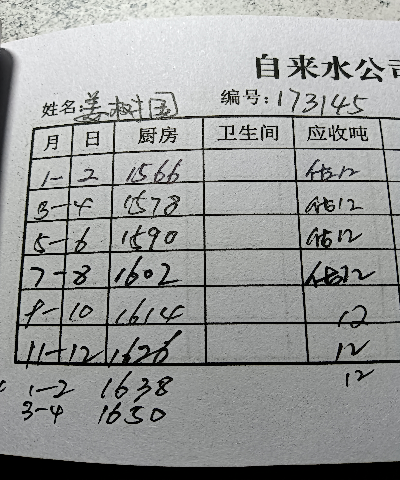 自来水公司
姓名:姜树国 编号:173145
月 日 厨房 卫生间 应收吨
1-2 1566 估12
3-4 1578 估12
5-6 1590 估12
7-8 1602 估12
9-10 1614 12
11-12 1626 12
1-2 1638 12
3-4 1650